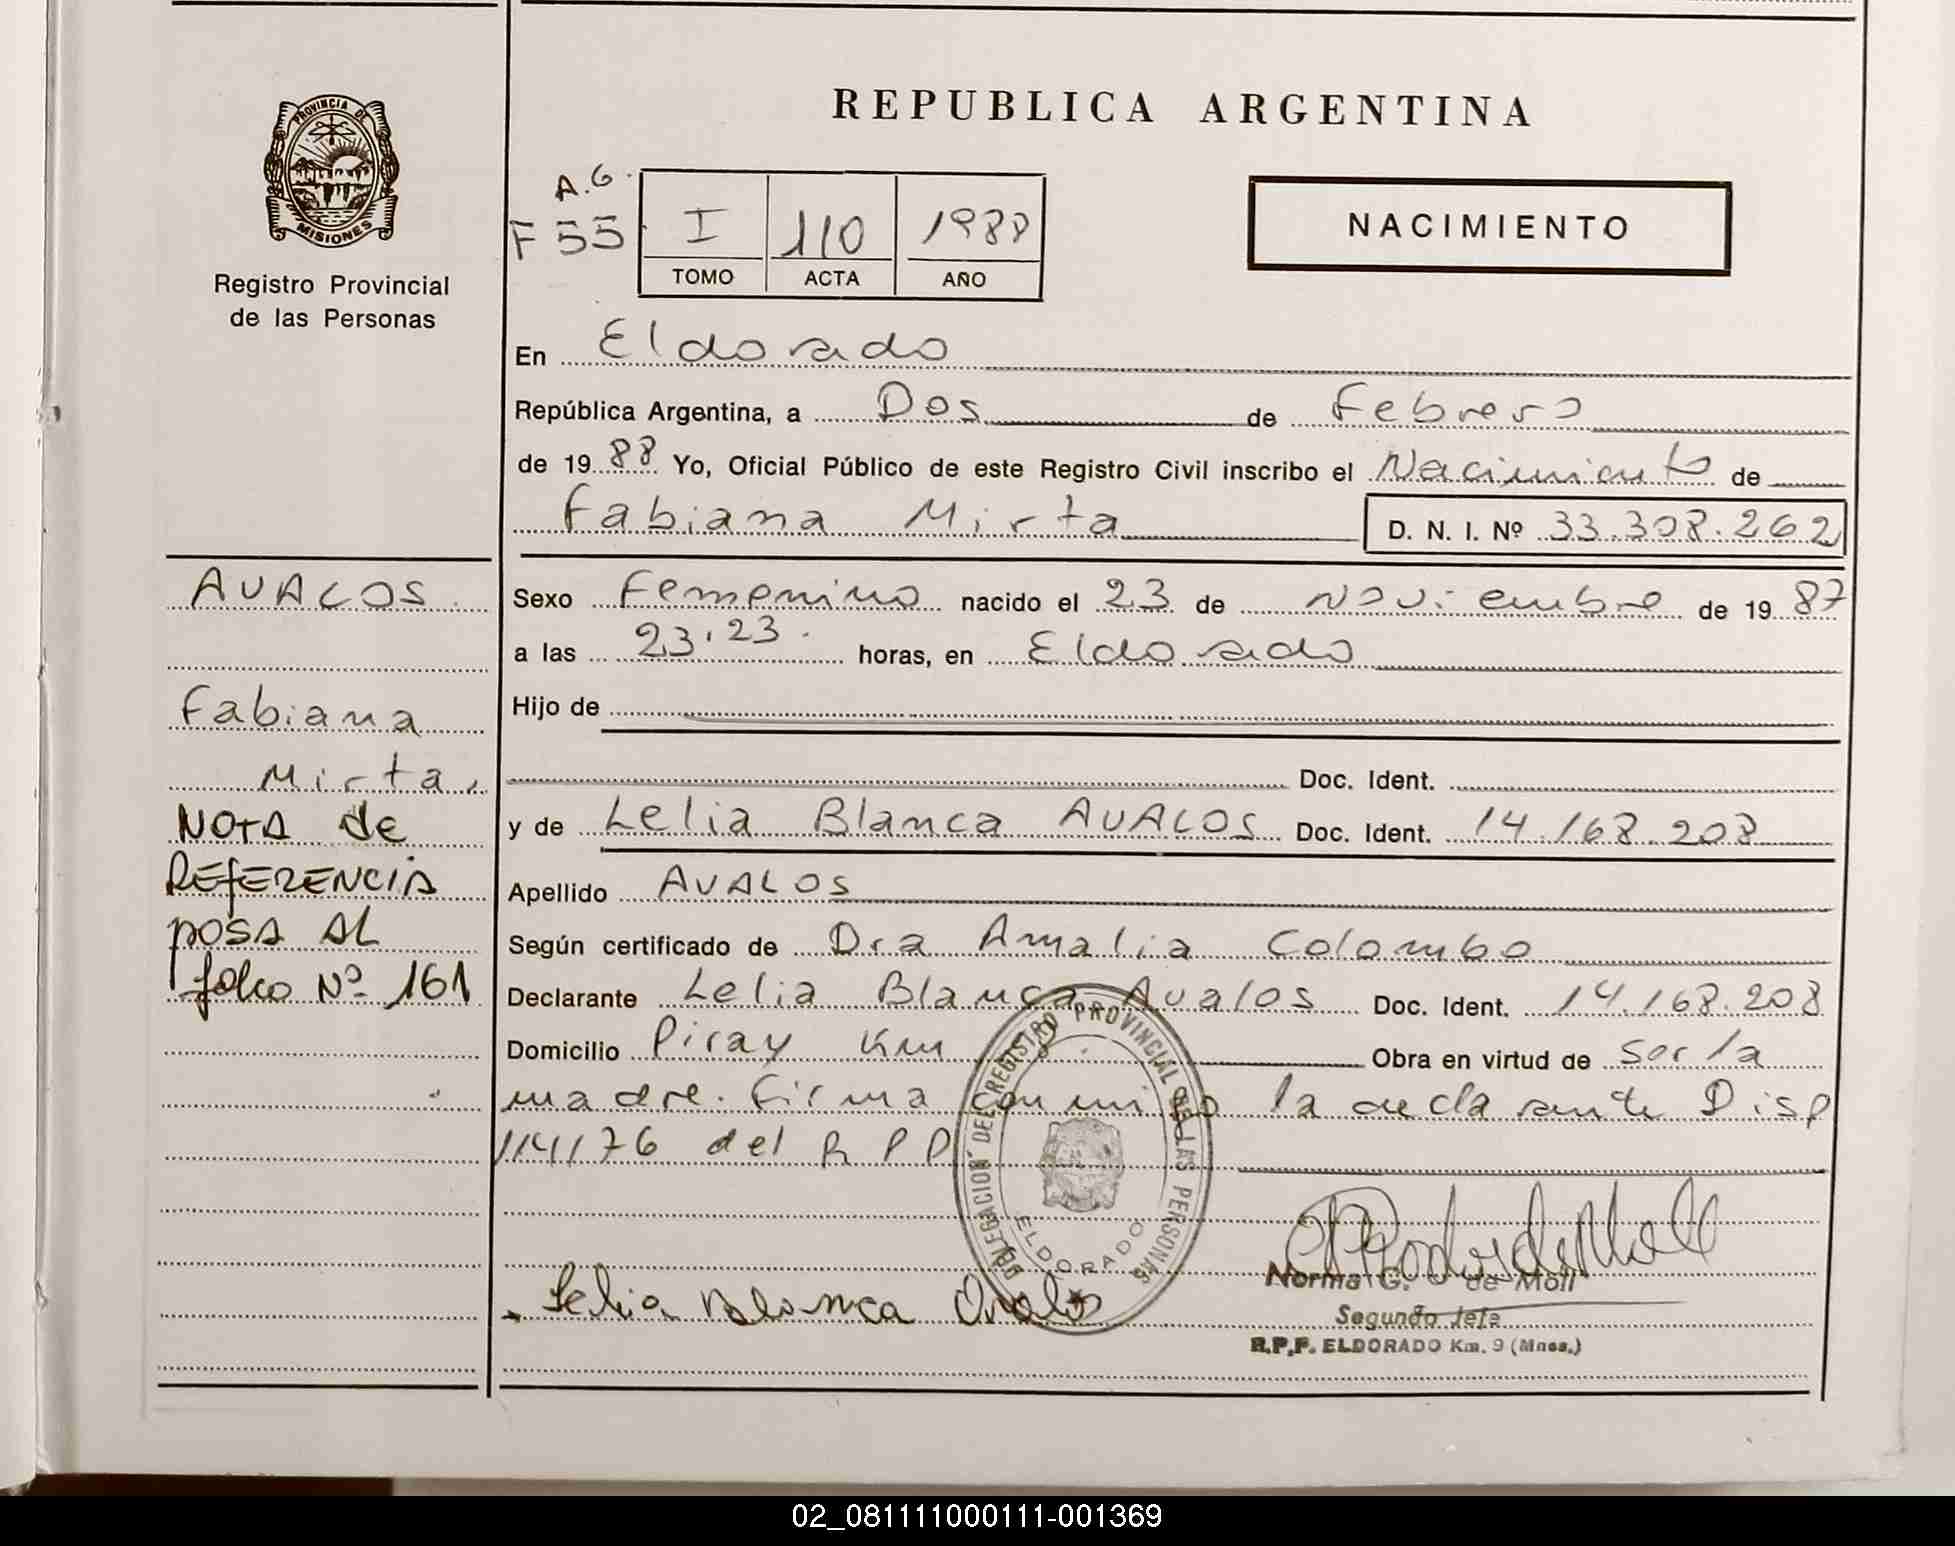 REPUBLICA ARGENTINA
PROVINCIA DE
MISIONES
Registro Provincial
de las Personas
A.G.
F 55
I 110 1988
TOMO ACTA AÑO
NACIMIENTO
En Eldorado
República Argentina, a Dos de Febrero
de 19 88 Yo, Oficial Público de este Registro Civil inscribo el Nacimiento de
Fabiana Mirta D. N. I. Nº 33.308.262
Sexo Femenino nacido el 23 de Noviembre de 19 87
a las 23,23. horas, en Eldorado
Hijo de
Doc. Ident.
y de Lelia Blanca AVALOS Doc. Ident. 14.168.208
Apellido AVALOS
Según certificado de Dra Amalia Colombo
Declarante Lelia Blanca Avalos Doc. Ident. 14.168.208
Domicilio Piray Km 8. Obra en virtud de ser la
madre. Firma conmigo la declarante Disp
114/76 del R P P
AVALOS
Fabiana
Mirta.
NOTA de
REFERENCIA
POSA AL
folio Nº 161
DELEGACION DEL REGISTRO PROVINCIAL DE LAS PERSONAS
ELDORADO
Lelia Blanca Avalos
Norma G. de Moll
Segundo Jefe
R.P.P. ELDORADO Km. 9 (Mnes.)
02_081111000111-001369